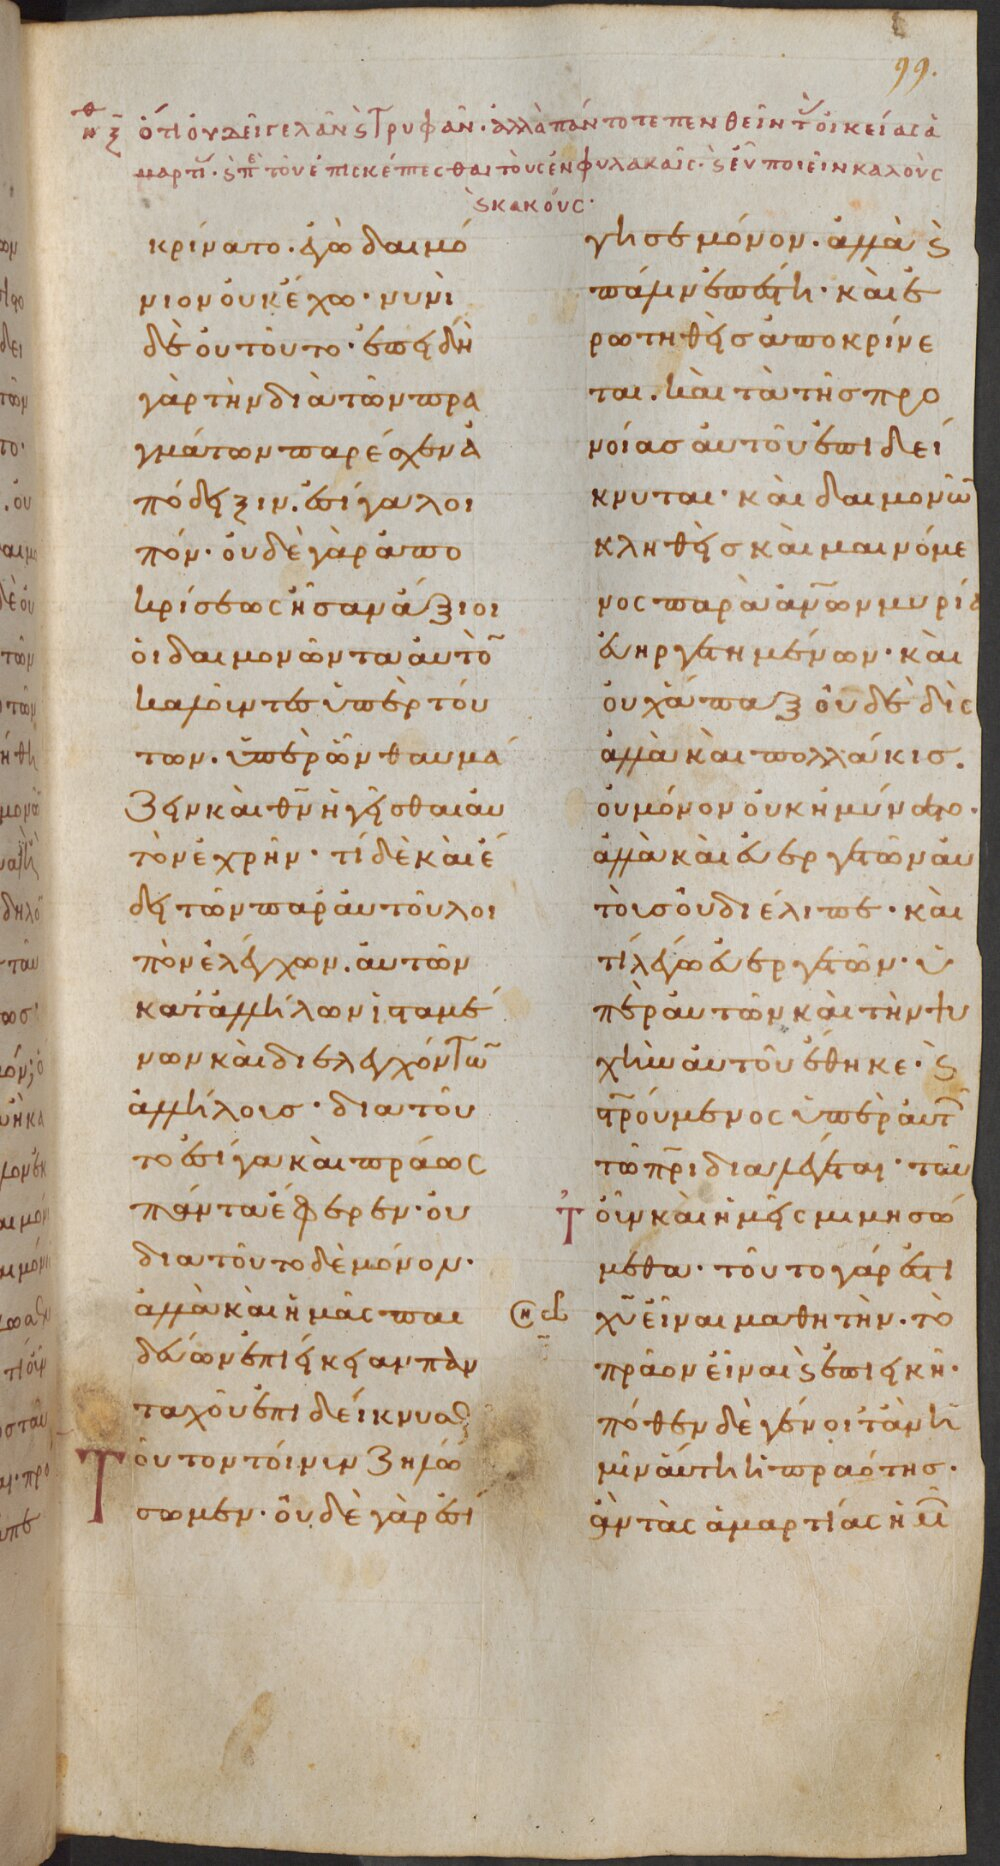 99.
ὅτι οὐ δεῖ γελᾶν ϗ τρυφᾶν· ἀλλὰ πάντοτε πενθεῖν τ οἰκείας ἁ
μαρτί· ϗ π τοῦ ἐπισκέπτεσθαι τοὺς ἐν φυλακαῖς· ϗ εὖ ποιεῖν καλοὺς
ϗ κακούς·
κρίνατο· ἐγὼ δαιμό
νιον οὐκ ἔχω· νυνὶ
δὲ οὐ τοῦτο· ἐπειδὴ
γὰρ τὴν διὰ τῶν πρα
γμάτων παρέσχεν ἀ
πόδειξιν. ἐσίγα λοι
πόν· οὐδὲ γὰρ ἀπο
κρίσεως ἦσαν ἄξιοι
οἱ δαιμονῶντα αὐτὸ
καλοῦντες ὑπὲρ τού
των. ὑπὲρ ὧν θαυμά
ζειν καὶ θν ἡγεῖσθαι αὐ
τὸν ἐχρῆν· τί δὲ καὶ ἔ
δει τῶν παρ' αὐτοῦ λοι
πὸν ἐλέγχων. αὐτῶν
κατ' ἀλλήλων ἱσταμέ
νων καὶ διελεγχόντω
ἀλλήλοις· διὰ τοῦ
το ἐσίγα καὶ πράως
πάντα ἔφερεν· οὐ
διὰ τοῦτο δὲ μόνον·
ἀλλὰ καὶ ἡμᾶς παι
δεύων ἐπιείκειαν παν
ταχοῦ ἐπιδείκνυσθ
Τοῦτον τοίνυν ζηλώ
σωμεν· οὐδὲ γὰρ ἐσί
γησε μόνον· ἀλλὰ ϗ
πάλιν ἐπέστη· καὶ ἐ
ρωτηθεὶς ἀποκρίνε
ται. καὶ τὰ τῆς προ
νοίας αὐτοῦ ἐπιδεί
κνυται· καὶ δαιμονῶ
κληθεὶς καὶ μαινόμε
νος παρὰ ἀνων μυρία
εὐηργετημένων· καὶ
οὐχ ἅπαξ οὐδὲ δὶς
ἀλλὰ καὶ πολλάκις.
οὐ μόνον οὐκ ἠμύνατο·
ἀλλὰ καὶ εὐεργετῶν αὐ
τοὺς οὐ διέλιπε· καὶ
τί λέγω εὐεργετῶν· ὑ
πὲρ αὐτῶν καὶ τὴν ψυ
χὴν αὐτοῦ ἔθηκε· ϗ
στρούμενος ὑπὲρ αὐτ
τῶ πρι διαλέγεται· ταῦ
Τ οὖν καὶ ἡμεῖς μιμησώ
μεθα· τοῦτο γάρ ἐστι
χυ εἶναι μαθητὴν· τὸ
πρᾶον εἶναι ϗ ἐπιεικῆ·
πόθεν δὲ γένοιτ' ἂν ἡ
μῖν αὕτη ἡ πραότης·
ἂν τὰς ἁμαρτίας ἡμ